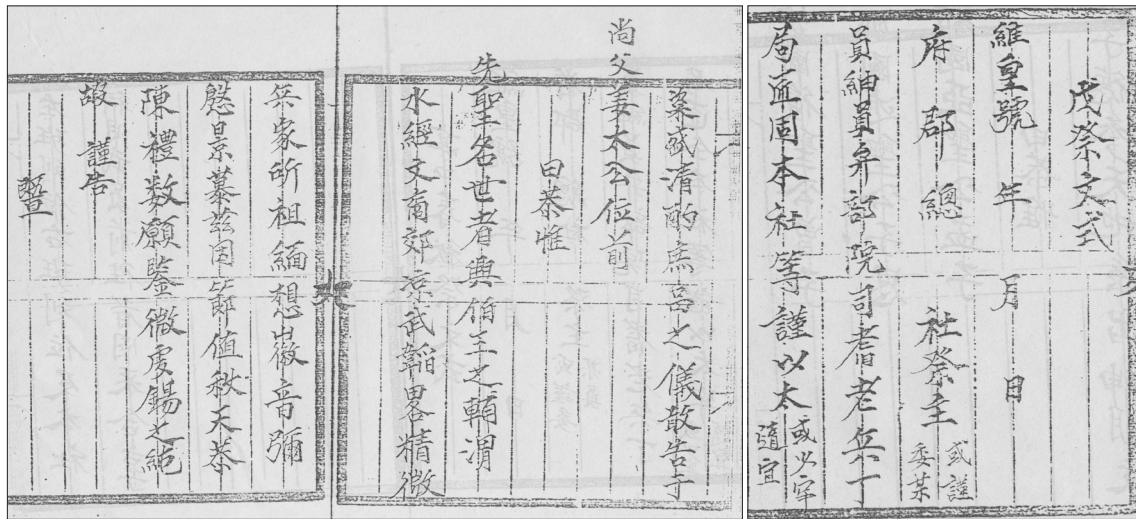 戊祭文式
維皇號 年 月 日
府 郡 總 社祭主 或謹委某
員紳員弁部院司耆老兵丁
局匠固本社等謹以太 或以宰隨宜
粢盛清酌庶品之儀敢告于
尚父姜太公位前
曰恭惟
先聖名世者興伯王之輔渭
水經文商郊凉武韜畧精微
兵家所祖緬想徽音彌
慇景慕茲因節值秋天恭
陳禮數願鑒微虔錫之純
嘏 謹告
暨